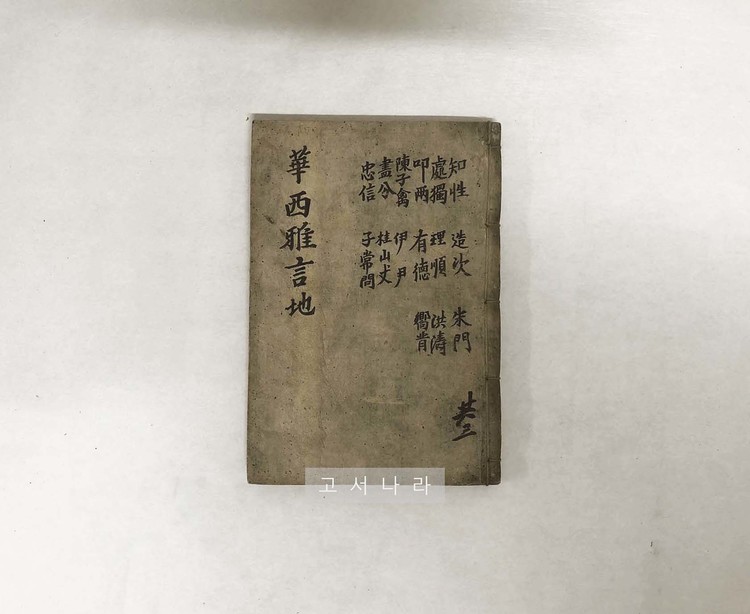 知性 造次 朱門
處獨 理順 洪濤
叩兩 有德 嚮背
陳子禽 伊尹
盡分 桂山丈
忠信 子常問
華西雅言地
共三
고서나라